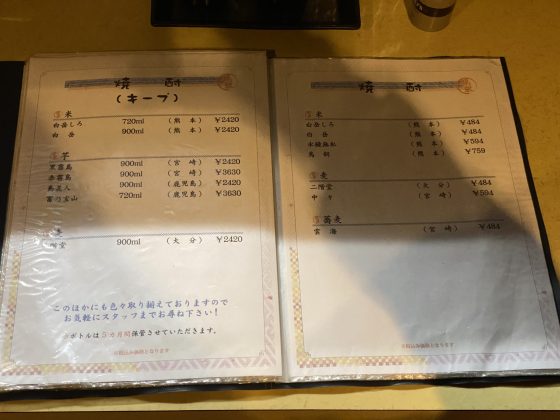 焼酎
(キープ)
米
白岳しろ 720ml (熊本) ¥2420
白岳 900ml (熊本) ¥2420
芋
黒霧島 900ml (宮崎) ¥2420
赤霧島 900ml (宮崎) ¥3630
島美人 900ml (鹿児島) ¥2420
富乃宝山 720ml (鹿児島) ¥3630
麦
階堂 900ml (大分) ¥2420
このほかにも色々取り揃えておりますので
お気軽にスタッフまでお尋ね下さい!
ボトルは5カ月間保管させていただきます。
※税込み価格となります
焼酎
米
白岳しろ (熊本) ¥484
白岳 (熊本) ¥484
(宮崎) ¥594
鳥飼 (熊本) ¥759
麦
二階堂 (大分) ¥484
中々 (宮崎) ¥594
蕎麦
雲海 (宮崎) ¥484
※税込み価格となります